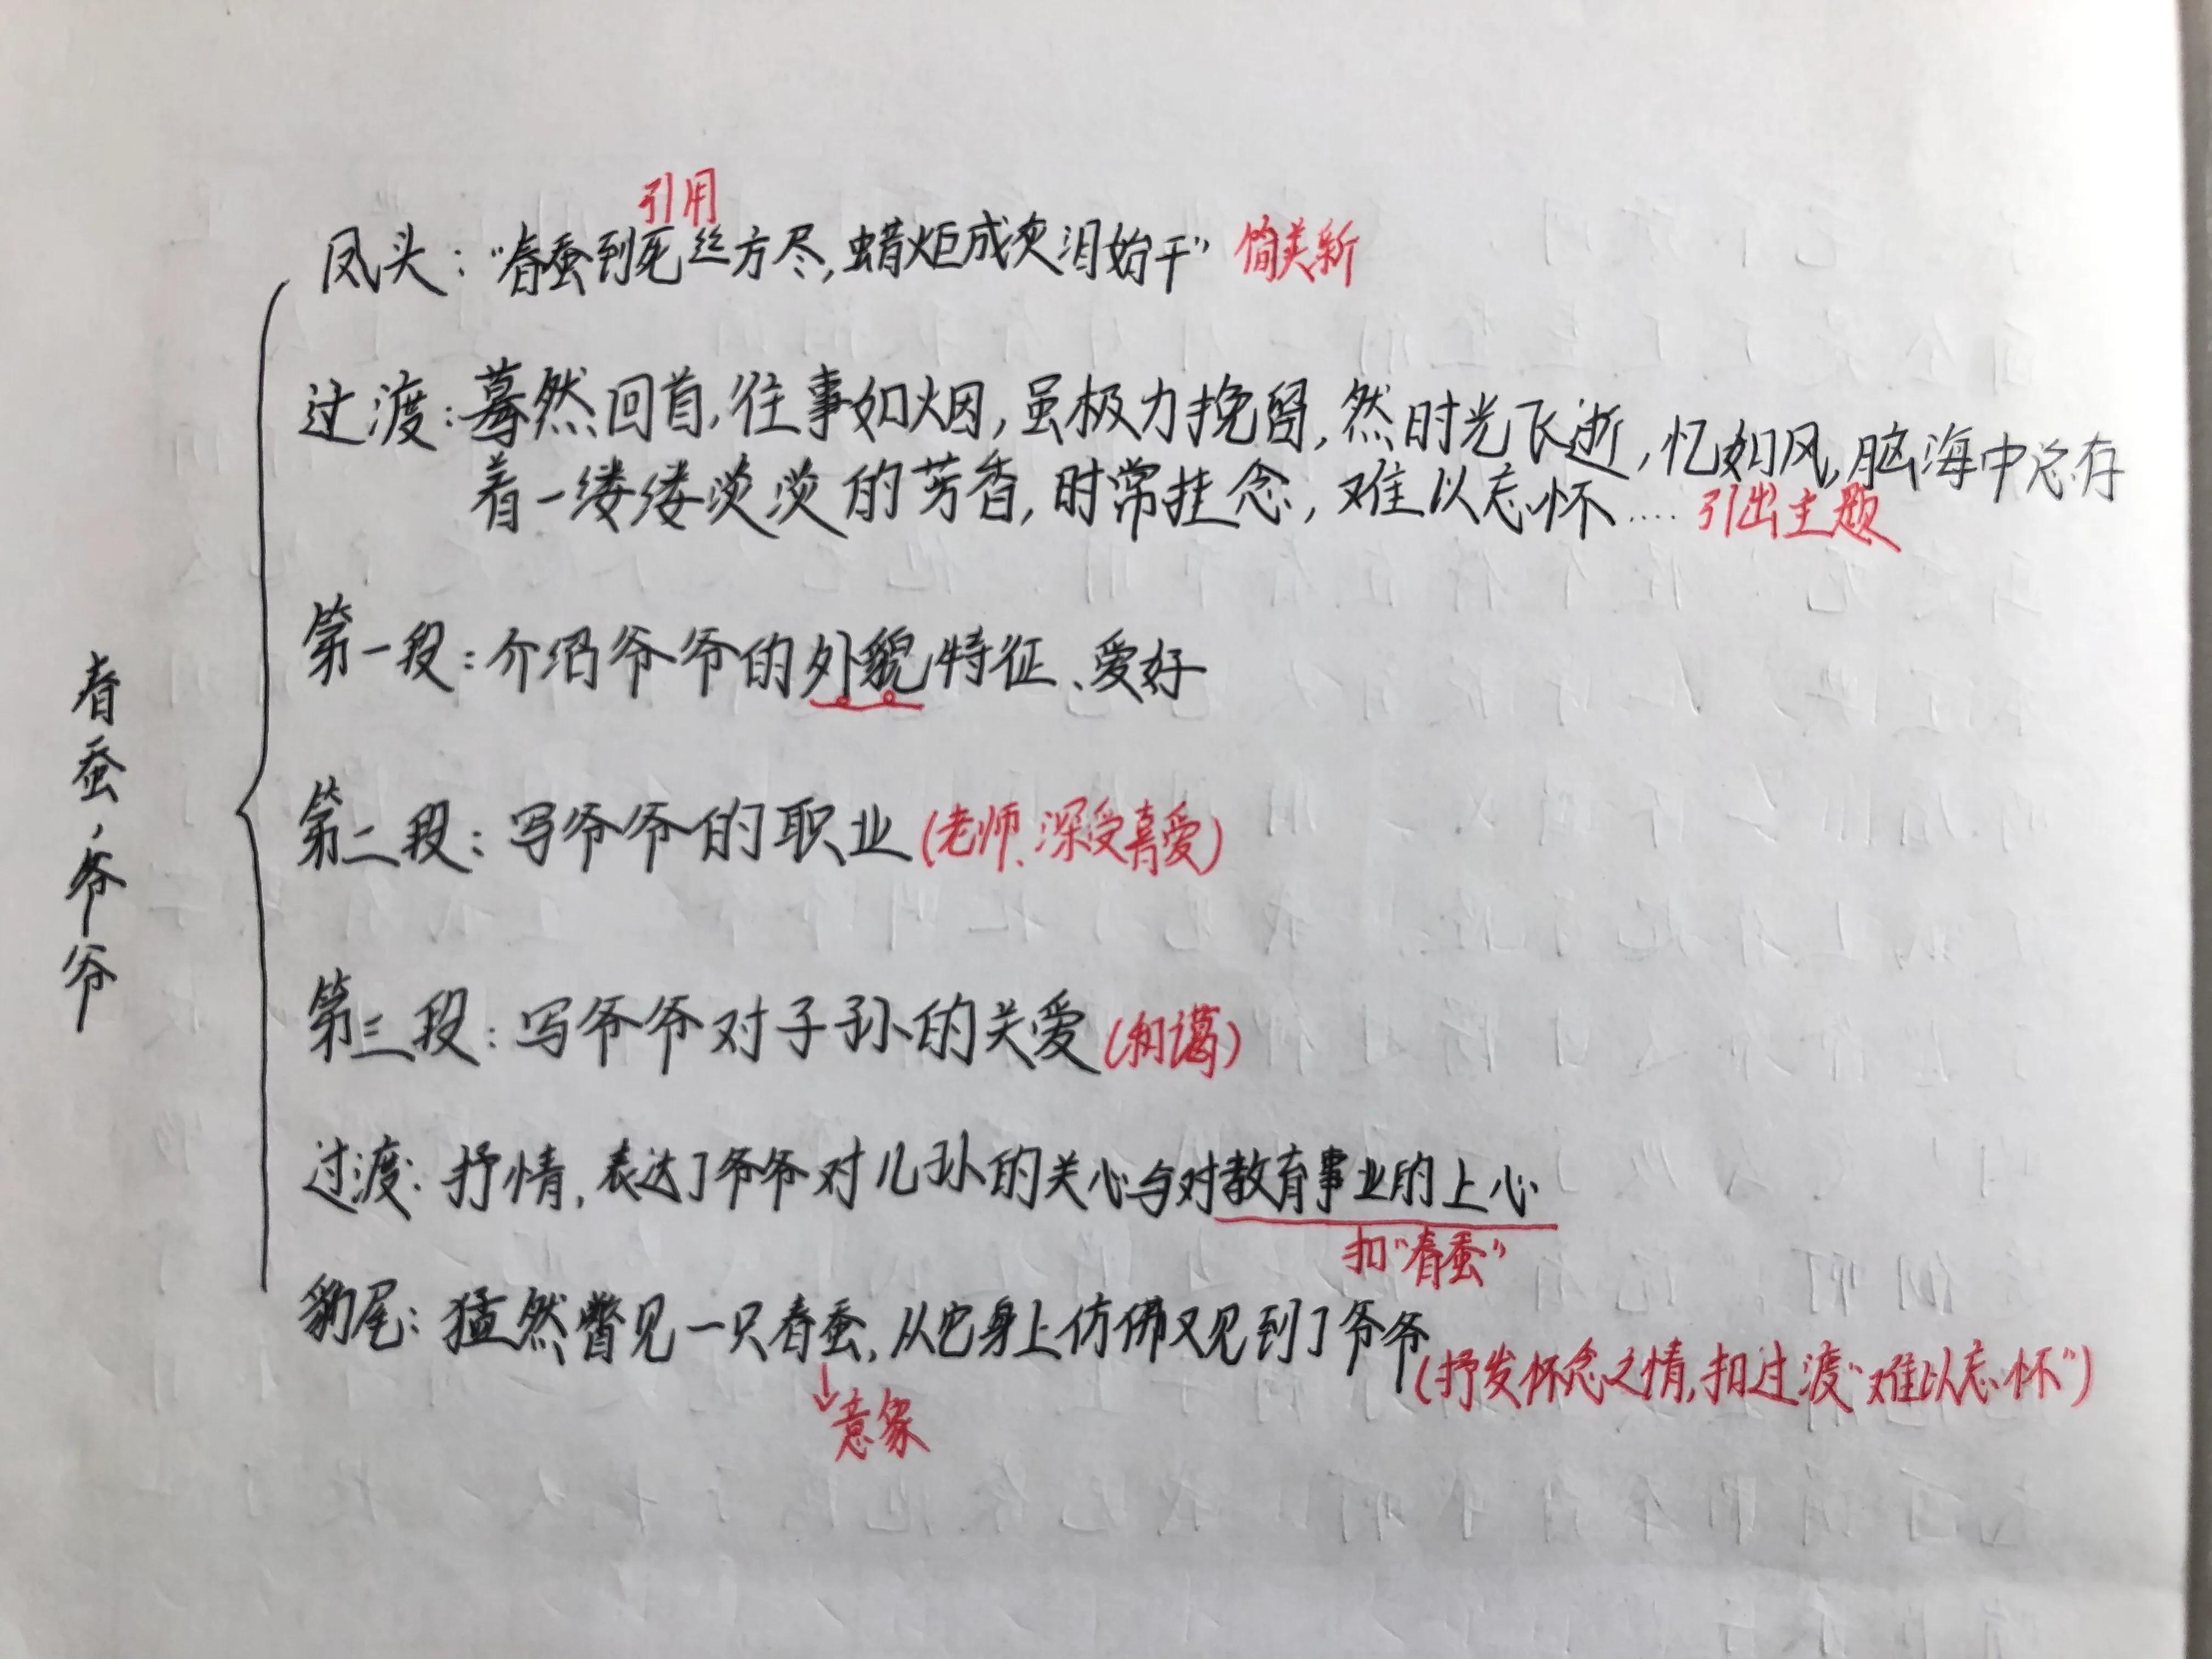 引用
凤头："春蚕到死丝方尽,蜡炬成灰泪始干" 简美新
过渡:蓦然回首,往事如烟,虽极力挽留,然时光飞逝,忆如风,脑海中总存
着一缕缕淡淡的芳香,时常挂念,难以忘怀.... 引出主题
第一段:介绍爷爷的外貌特征、爱好
春蚕,爷爷
第二段:写爷爷的职业(老师、深受喜爱)
第三段:写爷爷对子孙的关爱(和谒)
过渡:抒情,表达了爷爷对儿孙的关心与对教育事业的上心
扣"春蚕"
豹尾:猛然瞥见一只春蚕,从它身上仿佛又见到了爷爷(抒发怀念之情,扣过渡"难以忘怀")
↓
意象